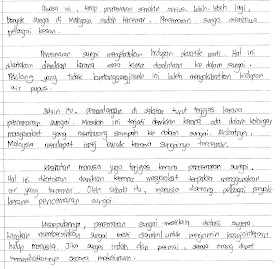 Dewasa ini, tahap pencemaran semakin serius. Lebih-lebih lagi,
banyak sungai di Malaysia sudah tercemar. Pencemaran sungai membawa
pelbagai kesan.
Pencemaran sungai mengakibatkan hidupan akuatik mati. Hal ini
dikatakan demikian kerana sisa kimia disalurkan ke dalam sungai.
yang tidak bertanggungjawab ini boleh mengakibatkan hidupan
air pupus.
Selain itu, pemandangan di sekitar turut terjejas kerana
pencemaran sungai. Masalah ini terjadi demikian kerana ada dalam kalangan
masyarakat yang membuang sampah ke dalam sungai. Akibatnya,
Malaysia mendapat imej buruk kerana sungainya tercemar.
Kesihatan manusia juga terjejas kerana pencemaran sungai.
Hal ini dikatakan demikian kerana masyarakat terpaksa menggunakan
air yang tercemar. Oleh sebab itu, manusia diserang pelbagai penyakit
kerana pencemaran sungai.
Kesimpulannya, pencemaran sungai mestilah diatasi segera.
membersihkan sungai mesti diambil untuk menjamin kesejahteraan
hidup manusia. Jika sungai indah dan permai, semua orang dapat
memanfaatkannya secara maksimum.